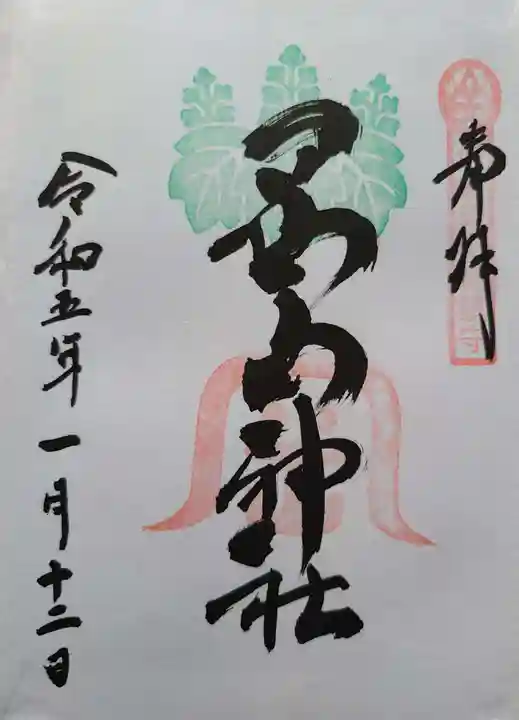 奉拝
高山神社
令和五年一月十二日